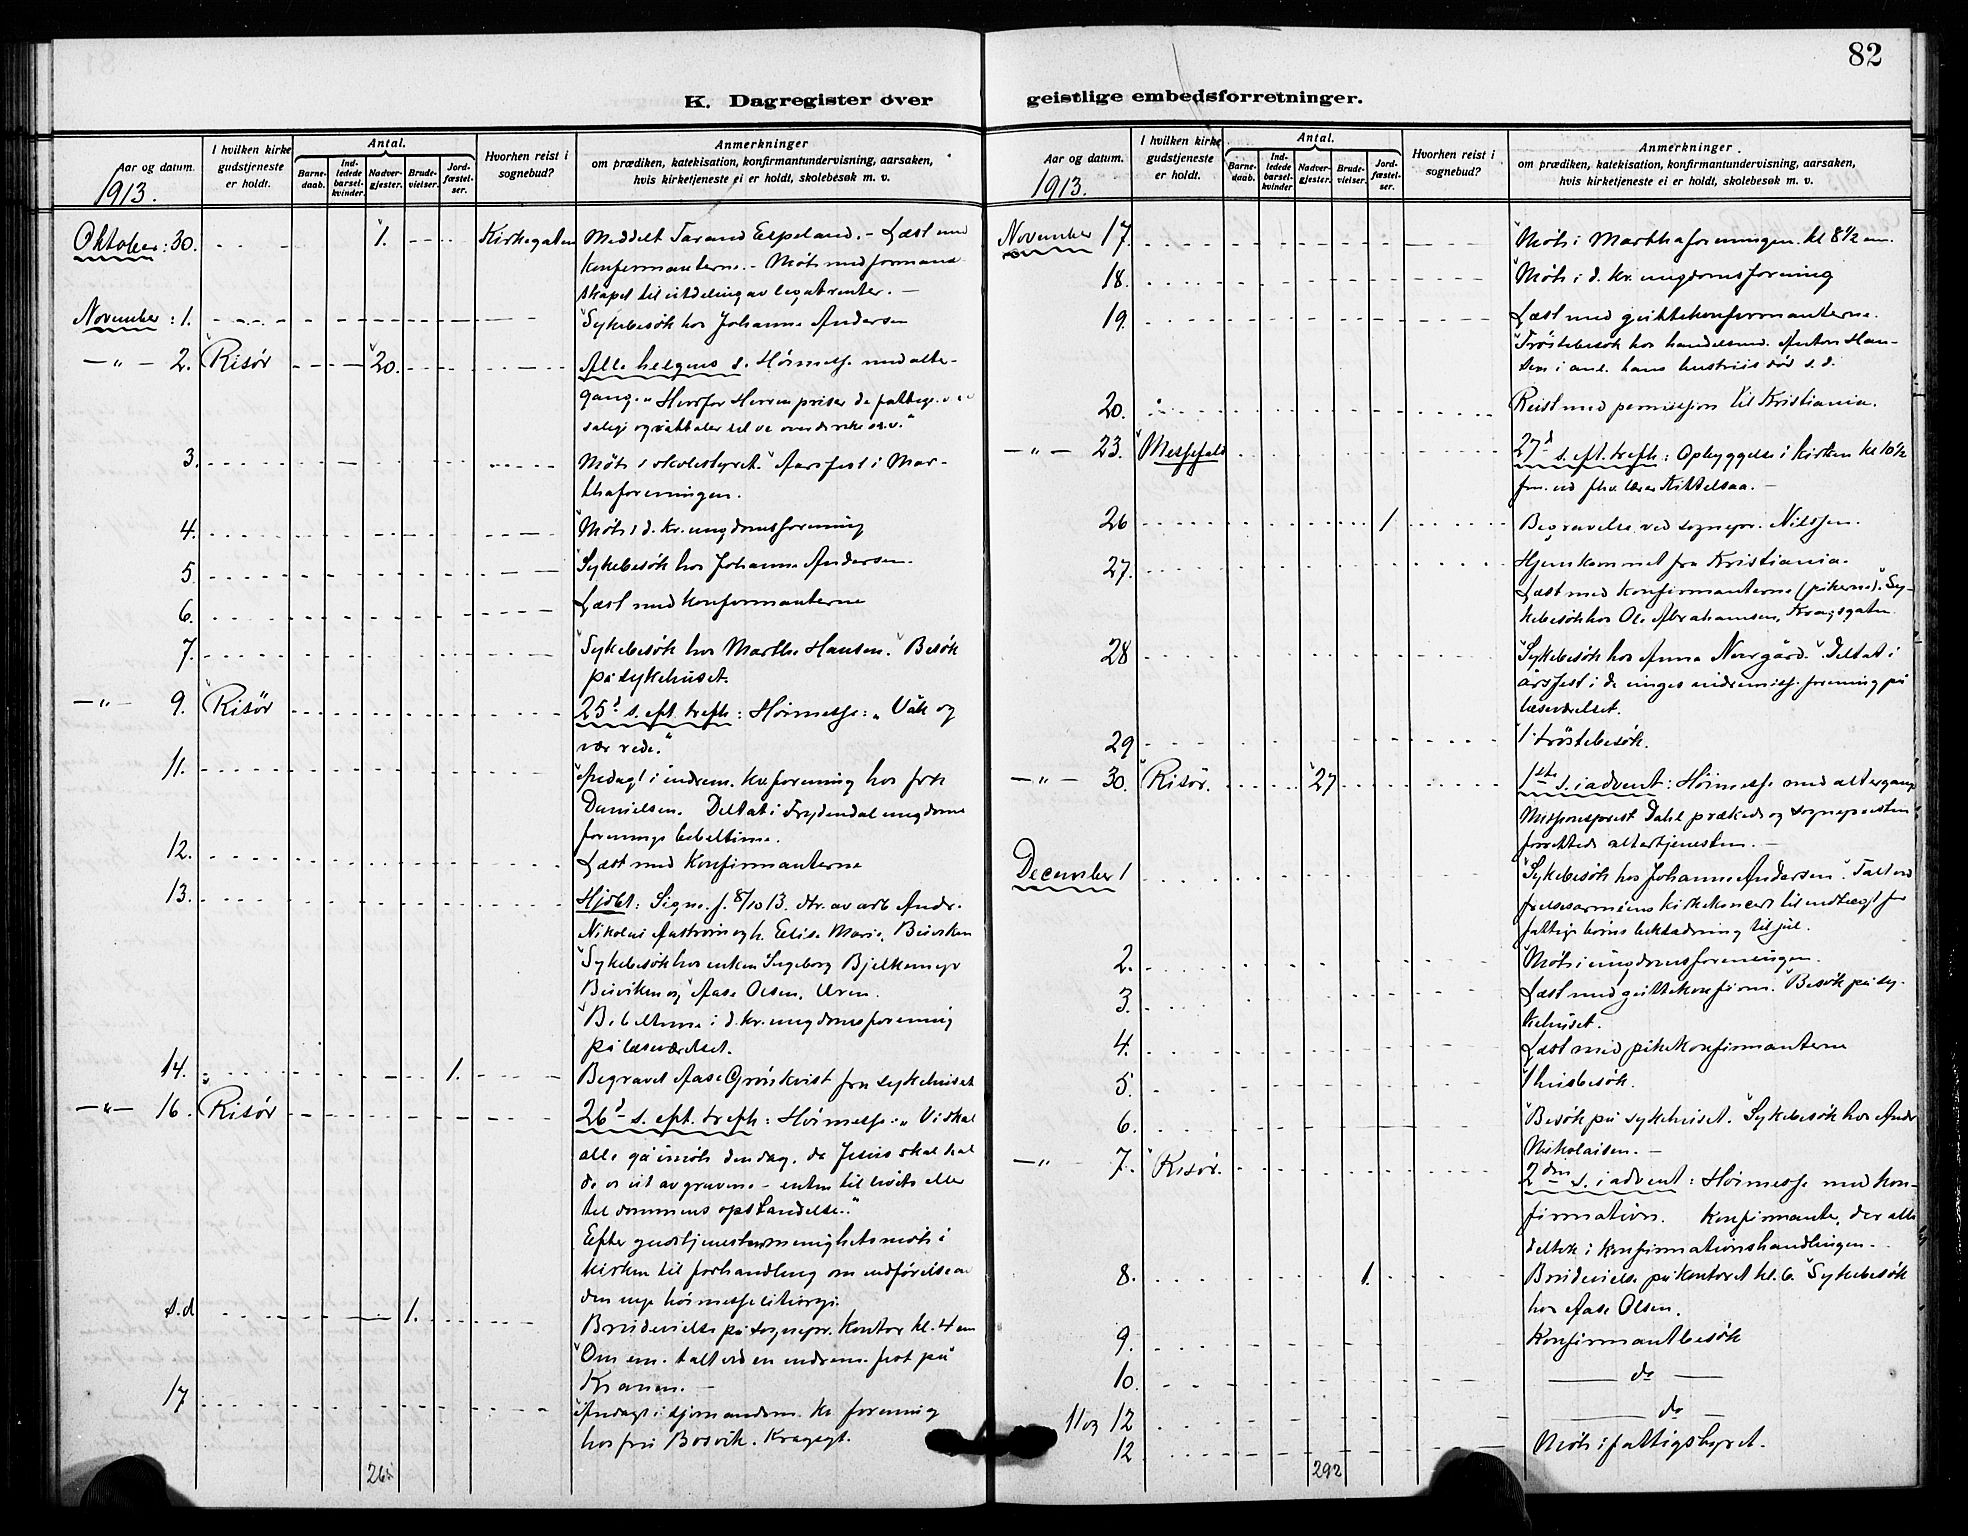 82
K. Dagregister over geistlige embedsforretninger.
Aar og datum.
I hvilken kirke gudstjeneste er holdt.
Antal.
Barnedaab.
Indledede barselkvinder.
Nadvergjester.
Brudevielser.
Jordfæstelser.
Hvorhen reist i sognebud?
Anmerkninger
om prædiken, katekisation, konfirmantundervisning, aarsaken,
hvis kirketjeneste ei er holdt, skolebesøk m. v.
1913.
Oktober: 30. 1. Kirkegaten Meddelt Espeland. - Læst med
konfirmanterne. - Møte med formand-
skapet til utdeling av legatrenter. -
November: 1. Sykebesøk hos Johanne Andersen
-"- 2. Risør 20. Alle helgens s. Høimesse med alter-
gang. "Hvorfor Herren priser de fattige
salige
3. Møte i skolestyret. Aarsfest i Mar-
thaforeningen.
4. Møte i d. kr. ungdomsforening
5. Sykebesøk hos Johanne Andersen.
6. Læst med konfirmanterne
7. Sykebesøk hos Marthe Hansen. Besøk
på sykehuset.
-"- 9. Risør 25d s. eft. trefh: Høimesse: "Våk og
vær rede."
11. Andagt i indrem. kv.forening hos frk
Danielsen. Deltat i Frydendal ungdoms
forenings bibeltime.
12. Læst med konfirmanterne
13. Hjdbt: Signe f. 8/10 13. dtr. av arb Andr.
Nikolai og h. Elise Marie, Buviken
Sykebesøk hos enken Ingeborg Bjelkemyr
Buviken og Aase Olsen, Uren.
Bibeltime i d. kr. ungdomsforening
på læseværelset.
14. 1. Begravet Aase Grönkvist fra sykehuset
-"- 16. Risør 26d s. eft. trefh: Høimesse: "Vi skal
alle gå imøte den dag, da Jesus skal kal
de os ut av gravene - enten til livets eller
til dommens opstandelse."
Efter gudstjenesten menighetsmøte i
kirken til forhandling om indførelse av
den nye høimesseliturgi.
s.d 1. Brudevielse på sognepr. kontor kl. 4 em
Om em. talt ved en indrem. fest på
Kranen. -
17 Andagt i sjømandsm. kv forening
hos fru Bosvik. Kragsgt.
265
Aar og datum.
I hvilken kirke gudstjeneste er holdt.
Antal.
Barnedaab.
Indledede barselkvinder
Nadvergjester.
Brudevielser.
Jordfæstelser.
Hvorhen reist i sognebud?
Anmerkninger.
om prædiken, katekisation, konfirmantundervisning, aarsaken,
hvis kirketjeneste ei er holdt, skolebesøk m. v.
1913.
November 17. Møte i Marthaforeningen. kl 8 1/2 em.
18. Møte i d. kr. ungdomsforening
19. Læst med guttekonfirmanterne.
Trøstebesøk hos handelsmd. Anton Han-
sen i anl. hans hustrus død s. d.
20. Reist med permission til Kristiania.
-"- 23. Messefald 27d s. eft. trefh: Opbyggelse i kirken kl 10 1/2
fm. ved fhv. lærer Kittelsaa. -
26 1 Begravelse ved sognepr. Nilssen.
27. Hjemkommet fra Kristiania.
Læst med konfirmanterne (pikerne). Sy-
kebesøk hos Ole Abrahamsen, Kragsgaten
28 Sykebesøk hos Anna Norgård. Deltat i
årsfest i de unges indremiss. forening på
læseværelset.
29 1 trøstebesøk.
-"- 30. Risør. 27 1ste s. i advent: Høimesse med altergang
Missionsprest Dahl prækede og sognepresten
forrettede altertjenesten. -
December 1 Sykebesøk hos Johanne Andersen. Talt ved
frelsesarmeens kirkekoncert til indtægt for
fattige børns bekladning til jul.
2. Møte i ungdomsforeningen.
3. Læst med guttekonfirm. Besøk på sy-
kehuset.
4. Læst med pikekonfirmanterne
5. 1 husbesøk.
6. Besøk på sykehuset. Sykebesøk hos Andr
Nikolaisen. -
-"- 7. Risør. 2den s. i advent: Høimesse med kon-
firmation. Konfirmanter, der alle
deltok i konfirmationshandlingen.
8. 1. Brudevielse på kontoret kl. 6. Sykebesøk
hos Aase Olsen.
9. Konfirmantbesøk
10. do
11 og 12 do
12 Møte i fattigstyret.
292